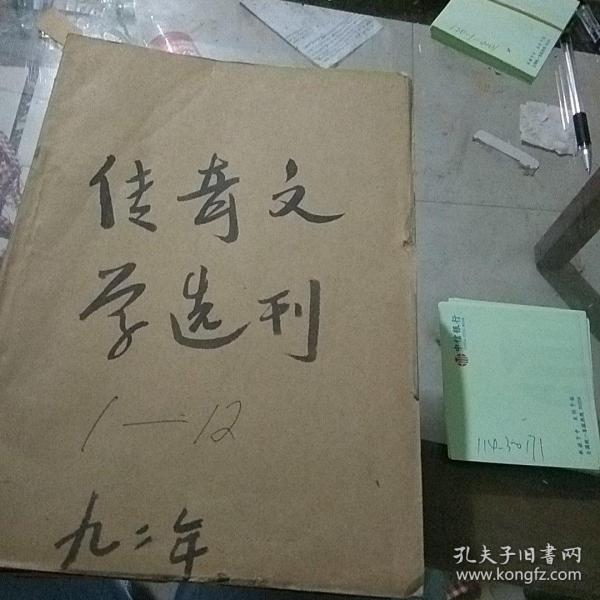 传奇文
学选刊
1—12
九二年
中信银行
114-30171
孔夫子旧书网
www.kongfz.com